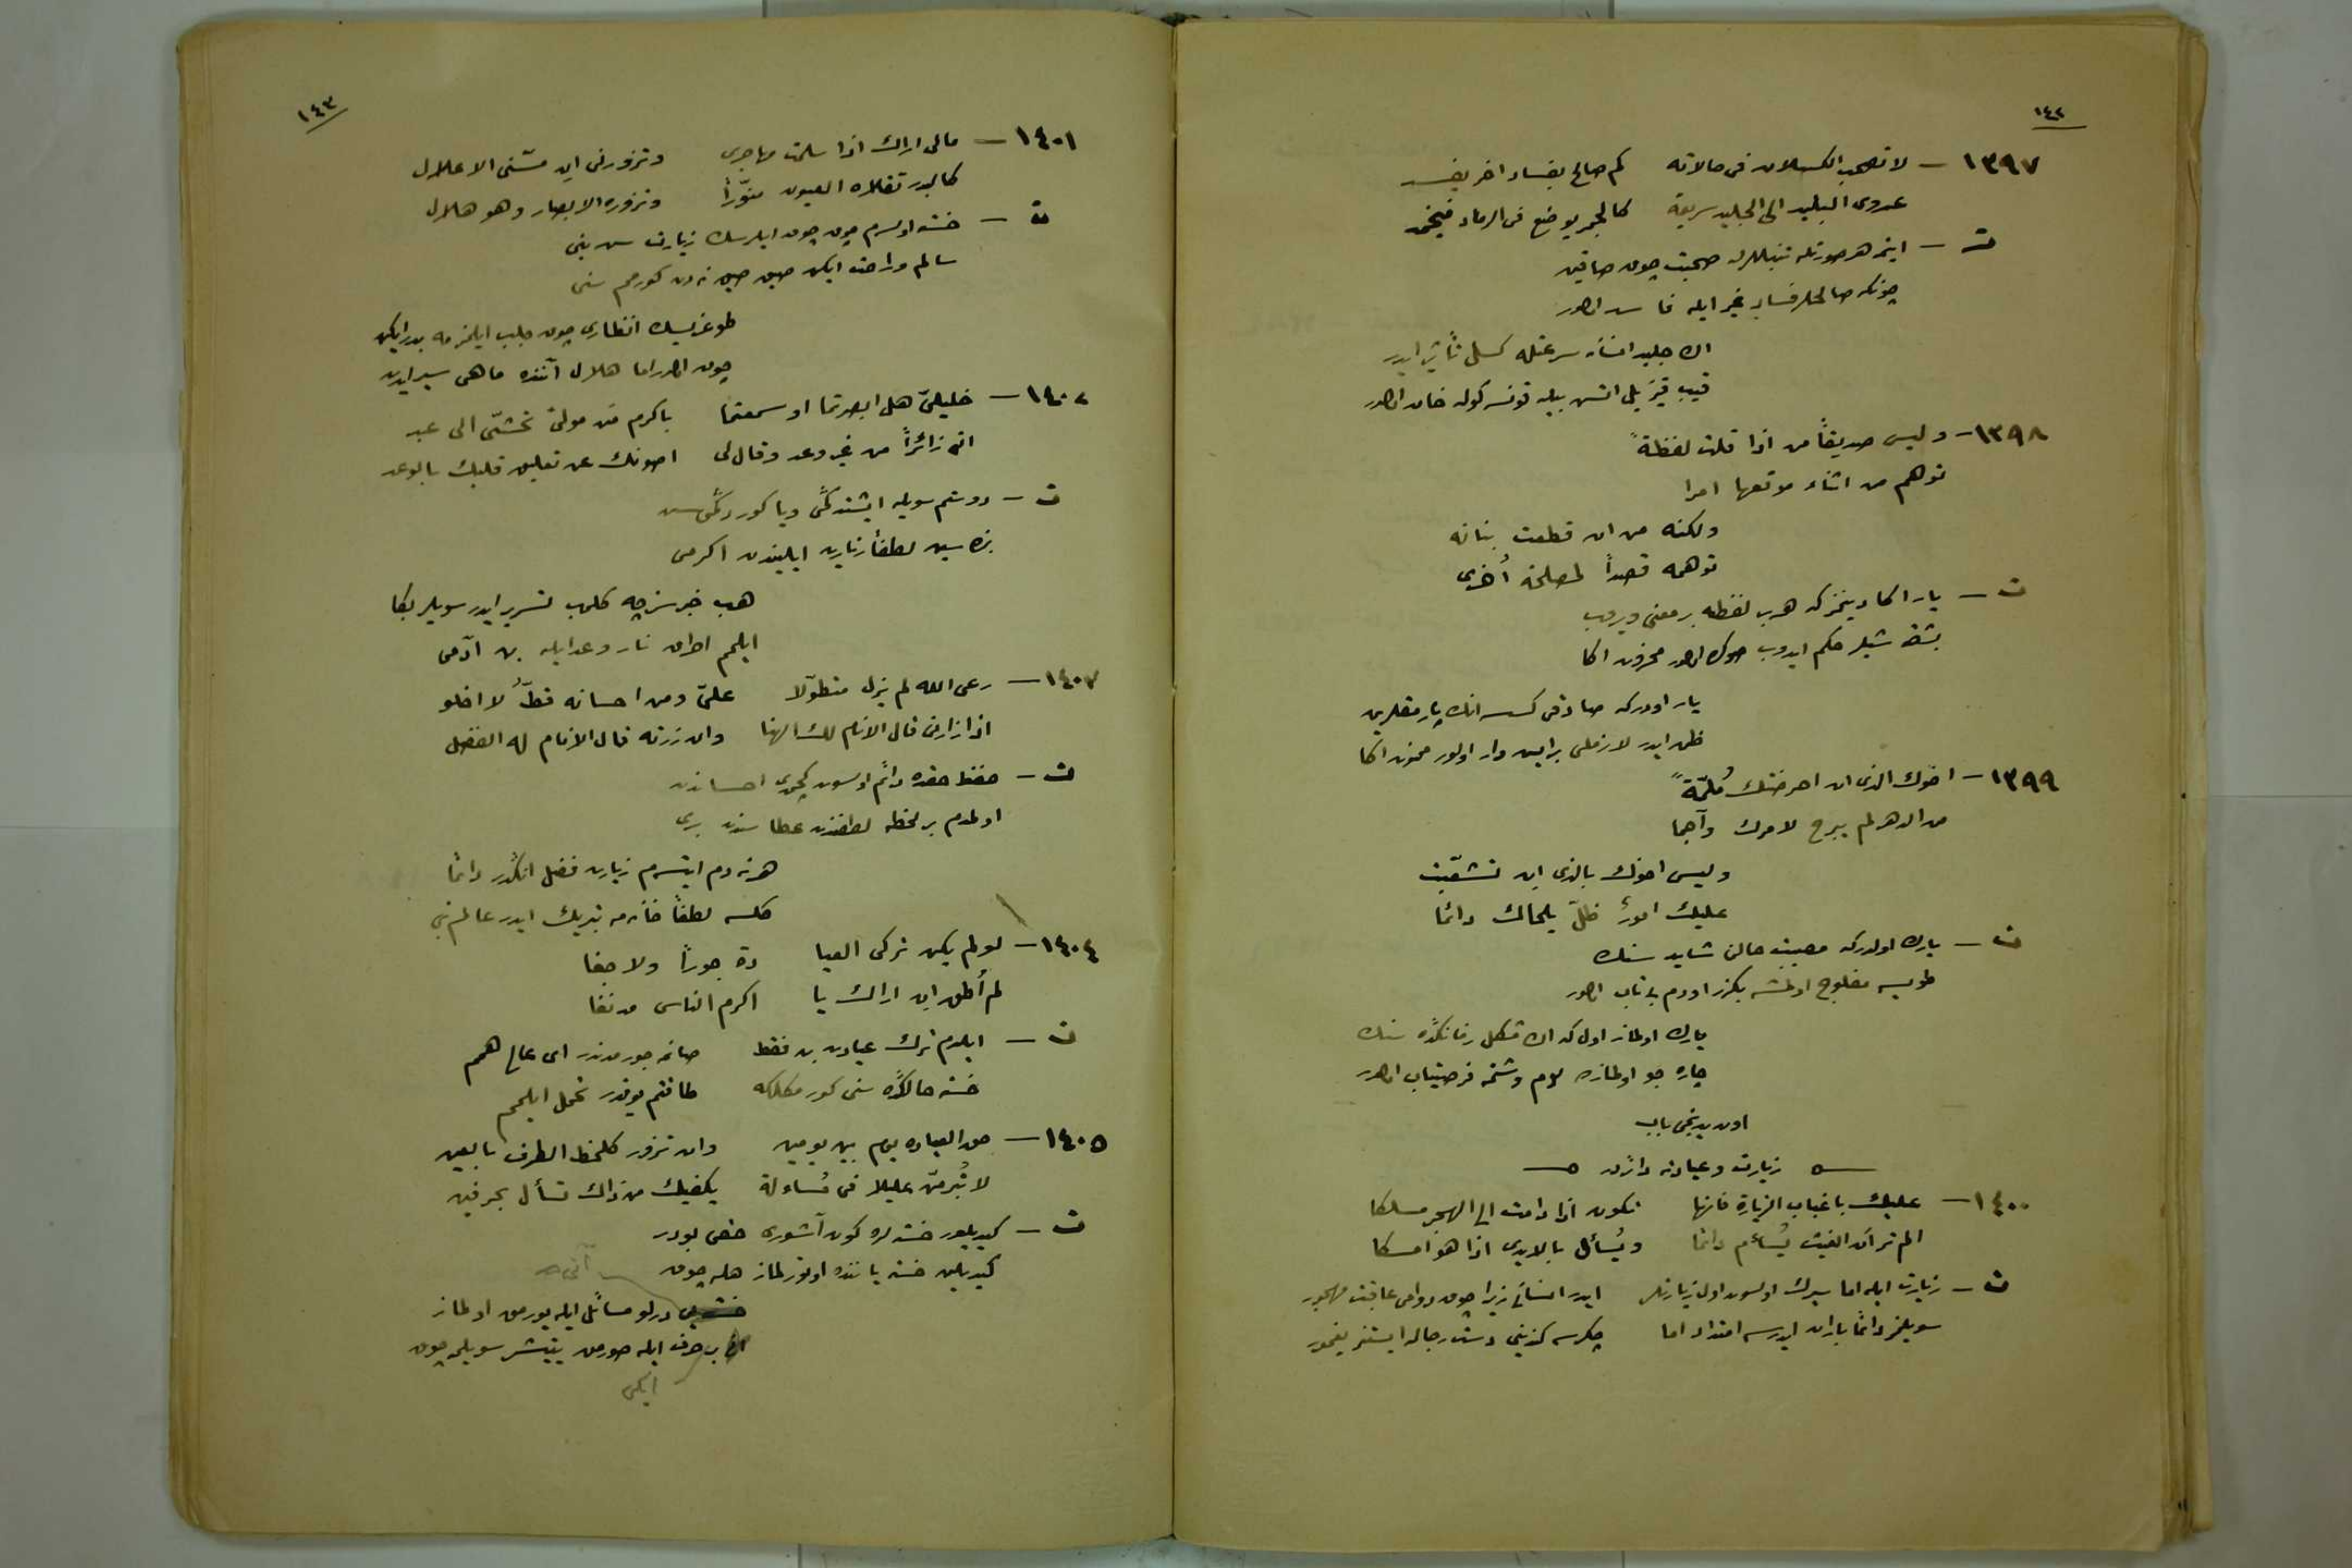 ١٤٢
١٣٩٧ — لا تصحب الكسلان فى حالاته كم صالح بفساد اخر يفسد
عدوى البليد الى الجليد سريعة كالجمر يوضع فى الرماد فيخمد
ت — ايتمه هر صورتله تنبللرله صحبت چوق صاقين
چونكه صالحلر فساد غير ايله فاسد اولور
اك جليد انسانه سرعتله كسل تأثير ايدر
قيپ قيزيل اتش بيله قونسه كوله خامد اولور
١٣٩٨ — وليس صديقاً من اذا قلت لفظةً
توهم من اثناء موقعها امرا
ولكنه من ان قطعت بنانه
توهمه قصداً لمصلحة أخرى
ت — يار اكا دينمز كه هر بر لفظه بر معنى ويروب
بشقه شيلر حكم ايدوب صوكره اولور محزون اكا
يار اودركه صادقى كسسه انك پارمقلرين
ظن ايدر لازملى بر ايش وار اولور ممنون اكا
١٣٩٩ — اخوك الذى ان احرضتك مُلمّةً
من الدهر لم يبرح لامرك واجما
وليس اخوك بالذى ان تشعّبت
عليك امورٌ ظلّ يلحاك دائما
ت — يارك اولدركه مصيبت حالن شايد سنك
طويسه مفلوج اولمشه بكزر اودم بى تاب اولور
يارك اولماز اول كه اك مشكل زمانكده سنك
چاره جو اولمازده لوم وشتمه فرصتياب اولور
اون يدنجى باب
زيارت وعيادته دائردر
١٤٠٠ — عليك باغباب الزيارة فانها تكون اذا دامت الى الهجر مسلكا
الم تر أن الغيث يُسأم دائما ويُسأل بالايدى اذا هو امسكا
ت — زيارت ايله اما سيرك اولسون اول زيارتلر ايدر انسانى زيرا چوق دوامى عاقبت مهجور
سويلمز دائما باران ايدرسه امتداد اما چكرسه كنديني دست رجالر ايستنر يغمور
١٤٣
١٤٠١ — مالى اراك اذا سلمت مهاجرى وتزورنى ان مسّنى الاعلال
كالبدر تقلاه العيون منوّراً وتزوره الابصار وهو هلال
ت — خسته اولسم چوق چوق ايلرسك زيارت سن بنى
سالم وراحت ايكن صيق صيق نه دن كورمم سنى
طوغريسك انظارى چوق جلب ايلمز مه بدر ايكن
چوق اولور اما هلال آننده ماهى سير ايدن
١٤٠٢ — خليليّ هل ابصرتما او سمعتما باكرم من مولى تمشّى الى عبد
اتى زائراً من غير وعد وقال لى اصونك عن تعليق قلبك بالوعد
ت — دوستم سويله ايشتدكمى ويا كوردكمى سن
بنده سين لطفاً زيارت ايليندن اكرمى
هب خبرسزجه كلوب تسرير ايدر سويلر بكا
ايلمم احراق نار وعد ايله بن آدمى
١٤٠٣ — رعى الله لم يزل متطوّلا علىّ ومن احسانه قطُّ لا اخلو
اذا زارنى قال الانام لك الهنا وان زرته قال الانام له الفضل
ت — حفظ حقده دائم اولسون احساندن
اولمدم بر لحظه لطفندن عطا سندن برى
هر نه دم ايتسم زيارت فضل انكدر دائما
كلسه لطفاً خانه مه تبريك ايدر عالم بنى
١٤٠٤ — لو لم يكن تركى العيا دة جوراً ولا جفا
لم أطق ان اراك يا اكرم الناس مدنفا
ت — ايلدم ترك عيادت بن فقط صانمه جوردندر اى عالى همم
خسته حالكده سنى كورمكلكه طاقتم يوقدر تحمل ايلمم
١٤٠٥ — حق العياده يوم بين يومين وان تزور كلحظ الطرف بالعين
لا تُبرمنّ عليلا فى مُساءلة يكفيك من ذاك تسأل بحرفين
ت — كيديلور خسته لره كون آشورى حقى بودر
كيديلن خسته ياننده اوتورلماز هله چوق
درلو مسائل ايله يورمق اولماز
بر حرف ايله صورمق يتيشر سويلمه چوق
ايكى